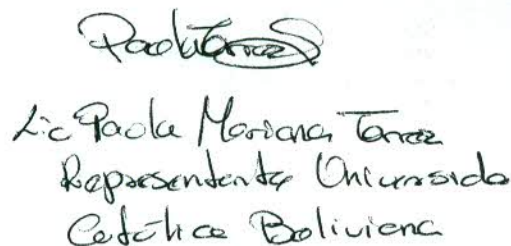 Paola Torrez S
Lic Paola Mariana Torrez
Representante Universida
Católica Boliviana